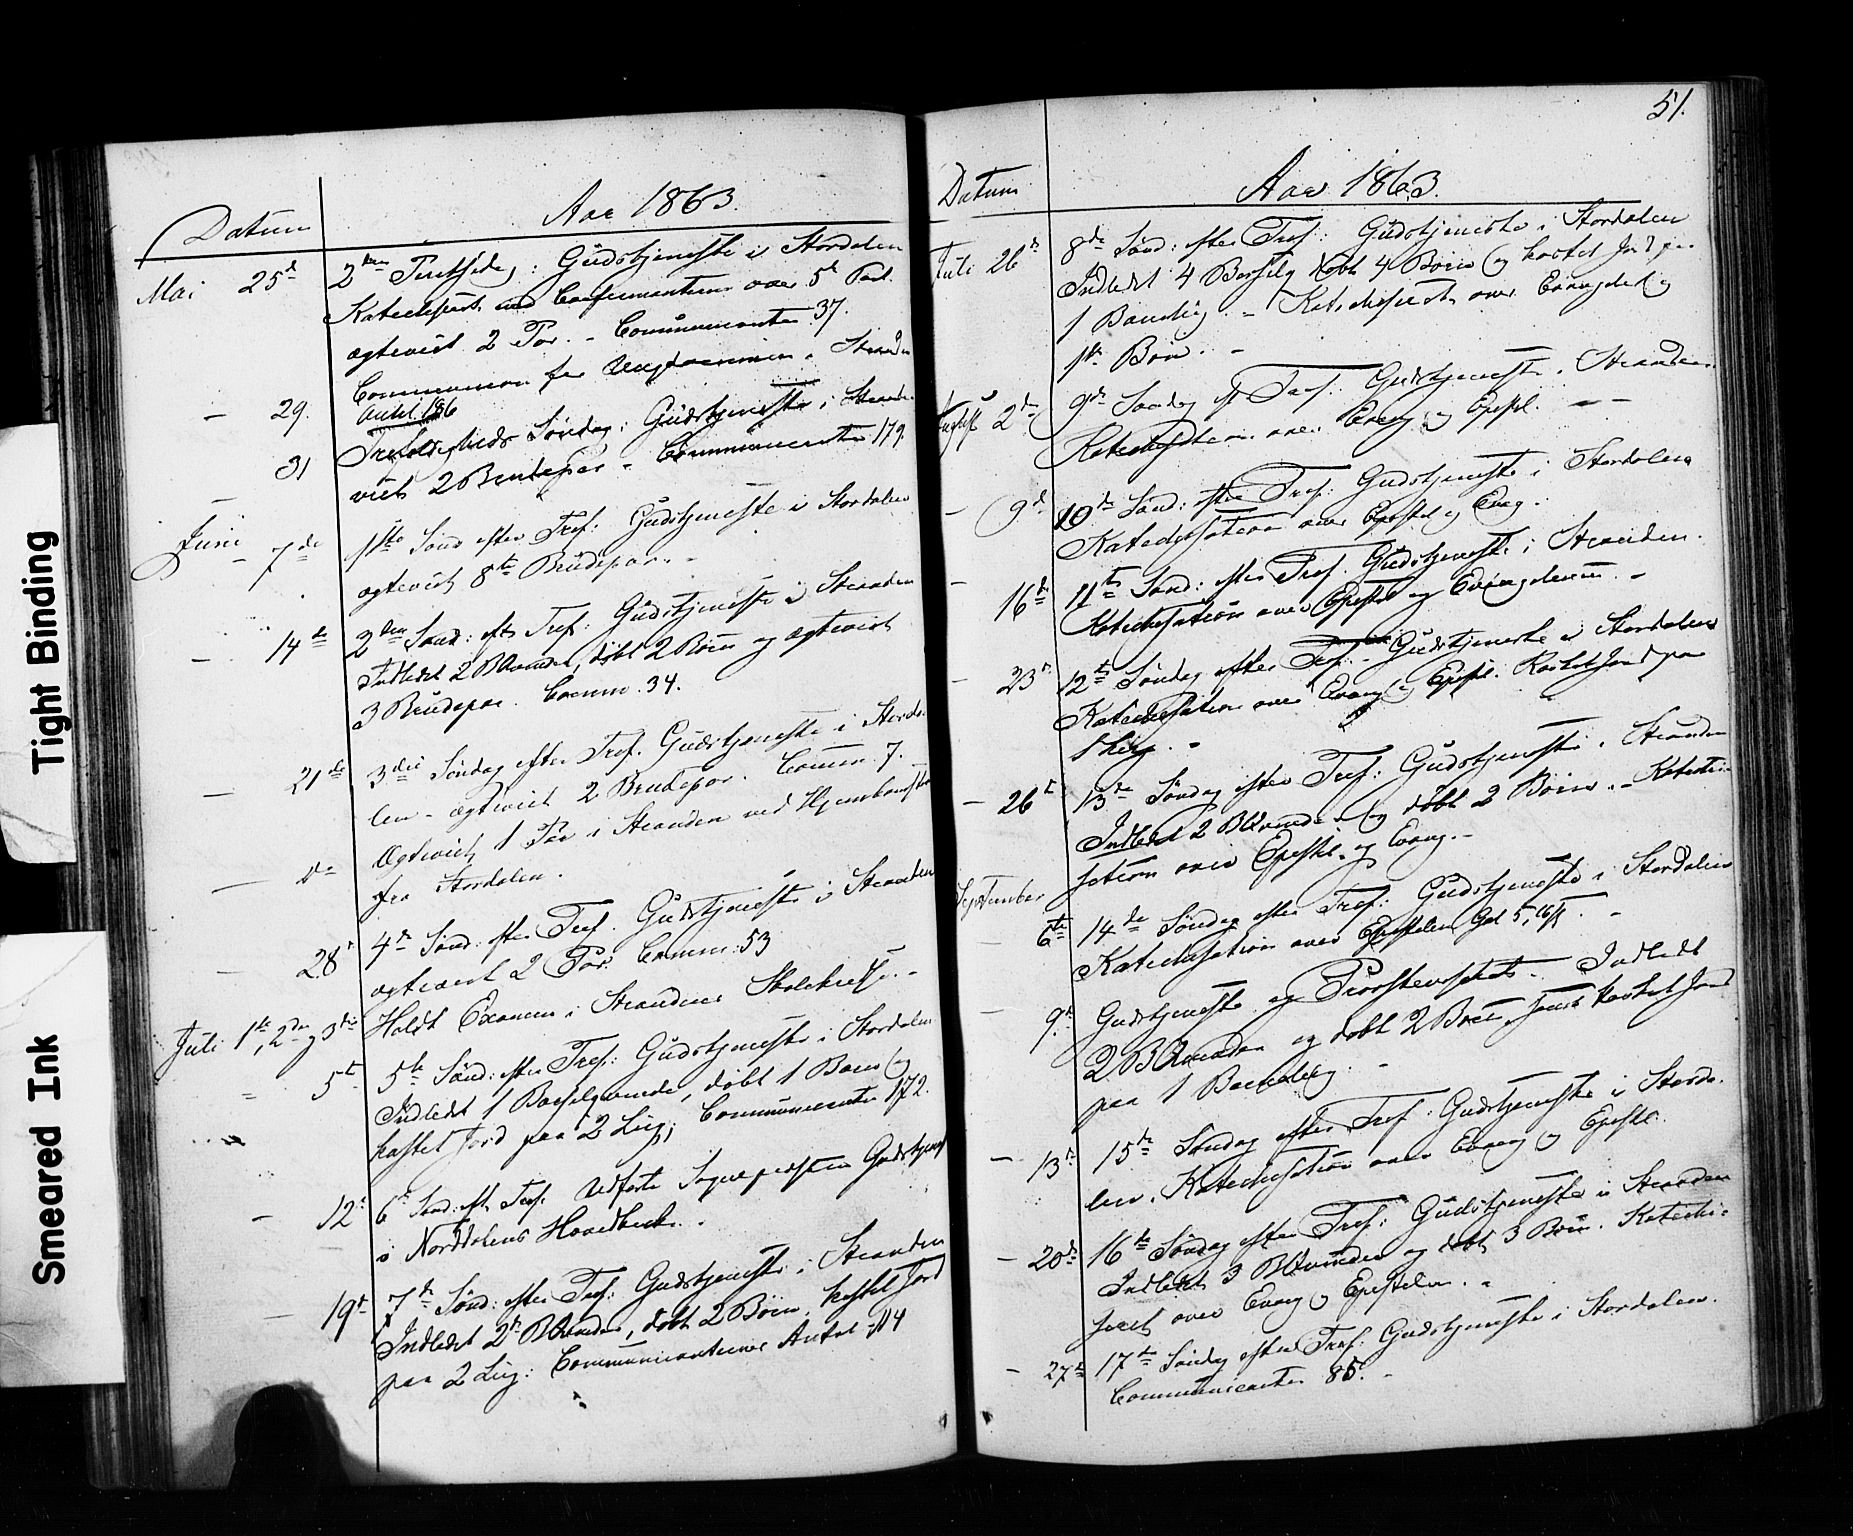 51.
Datum
Aar 1863.
Mai 25d 2den Pintsedag: Gudstjeneste i Stordalen
Katechisert med Confirmanterne over 5te Part.
ægteviet 2 Par. - Communicanter 37.
- 29. Communion for Ungdommen i Stranden
Antal 186
31 Trefoldigheds Søndag: Gudstjeneste i Stranden
viet 2 Brudepar - Communicanter 179.
Juni
- 7de 1ste Sønd efter Tref: Gudstjeneste i Stordalen
ægteviet 8te Brudepar. -
- 14de 2den Sønd: eft Tref: Gudstjeneste i Stranden
Indledet 2 BQvinder, døbt 2 Børn og ægteviet
3 Brudepar. Comm. 34.
- 21de 3die Søndag efter Tref. Gudstjeneste i Storda-
len - ægteviet 2 Brudepar. Comm. 7.
- da Ægteviet 1 Par i Stranden ved Hjemkomsten
fra Stordalen.
- 28d 4de Sønd: efter Tref. Gudstjeneste i Stranden
ægteviet 2 Par. Comm: 53
Juli 1ste, 2den og 3die Holdt Examen i Strandens Skolekreds. -
- 5te 5te Sønd: efter Tref: Gudstjeneste i Stordalen
Indledet 1 Barselqvinde, døbt 1 Barn og
kastet Jord paa 2 Liig; Communicanter 172.
- 12te 6te Sønd: eft Tref. Udførte Sognepresten Gudstjeneste
i Norddalens Hovedkirke. -
- 19de 7de Sønd: efter Tref: Gudstjeneste i Stranden
Indledet 2de BQvinder, døbt 2 Børn, kastet Jord
paa 2 Liig: Communicanternes Antal - 114
Datum
Aar 1863.
Juli 26de 8de Sønd: efter Tref: Gudstjeneste i Stordalen
Indledet 4 Barselq døbt 4 Børn og kastet Jord paa
1 Barnelig. - Katechisert over Evangeliet og
1ste Bøn. -
August 2den 9de Søndag eft Tref: Gudstjeneste i Stranden.
Katechisation over Evang og Epistl. - -
- 9de 10de Sønd: efter Tref: Gudstjeneste i Stordalen
Katechisation over Epistel og Evag.
- 16de 11te Sønd: efter Tref. Gudstjeneste i Stranden.
Katechisation over Epistel og Evangelium. -
- 23de 12te Søndag efter Tref. - Gudstjeneste i Stordalen
Katechisation over Evang og Epistl. Kastet Jord paa
1 Liig. -
- 26de 13de Søndag efter Tref: Gudstjeneste i Stranden
Indledet 2 BQvinder og døbt 2 Børn. - Katechi-
sation over Epistel og Evang. -
September
6te 14de Søndag efter Tref: Gudstjeneste i Stordalen
Katechisation over Epistelen Gal 5, 16
- 9de Gudstjeneste og Provstevisitats - Indledt
2 BQvinder og døbt 2 Børn, samt kastet Jord
paa 1 Barnelig. -
- 13de 15de Søndag efter Tref: Gudstjeneste i Storda-
len. Katechisation over Evang og Epistl.
- 20de 16de Søndag efter Tref: Gudstjeneste i Stranden
Indledet 3 BQvinder og døbt 3 Børn. Katechi-
seret over Evang og Epistelen. -
- 27de 17de Søndag efter Tref: Gudstjeneste i Stordalen.
Communicanter 85. -
Tight Binding
Smeared Ink